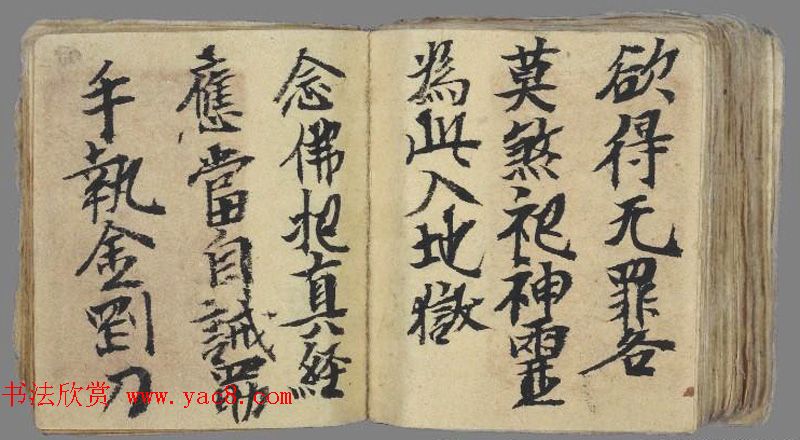 欲得无罪咎
莫煞祀神靈
為此入地獄
念佛把真経
應當自誡勗
手執金劉刀
书法欣赏 www.yac8.com